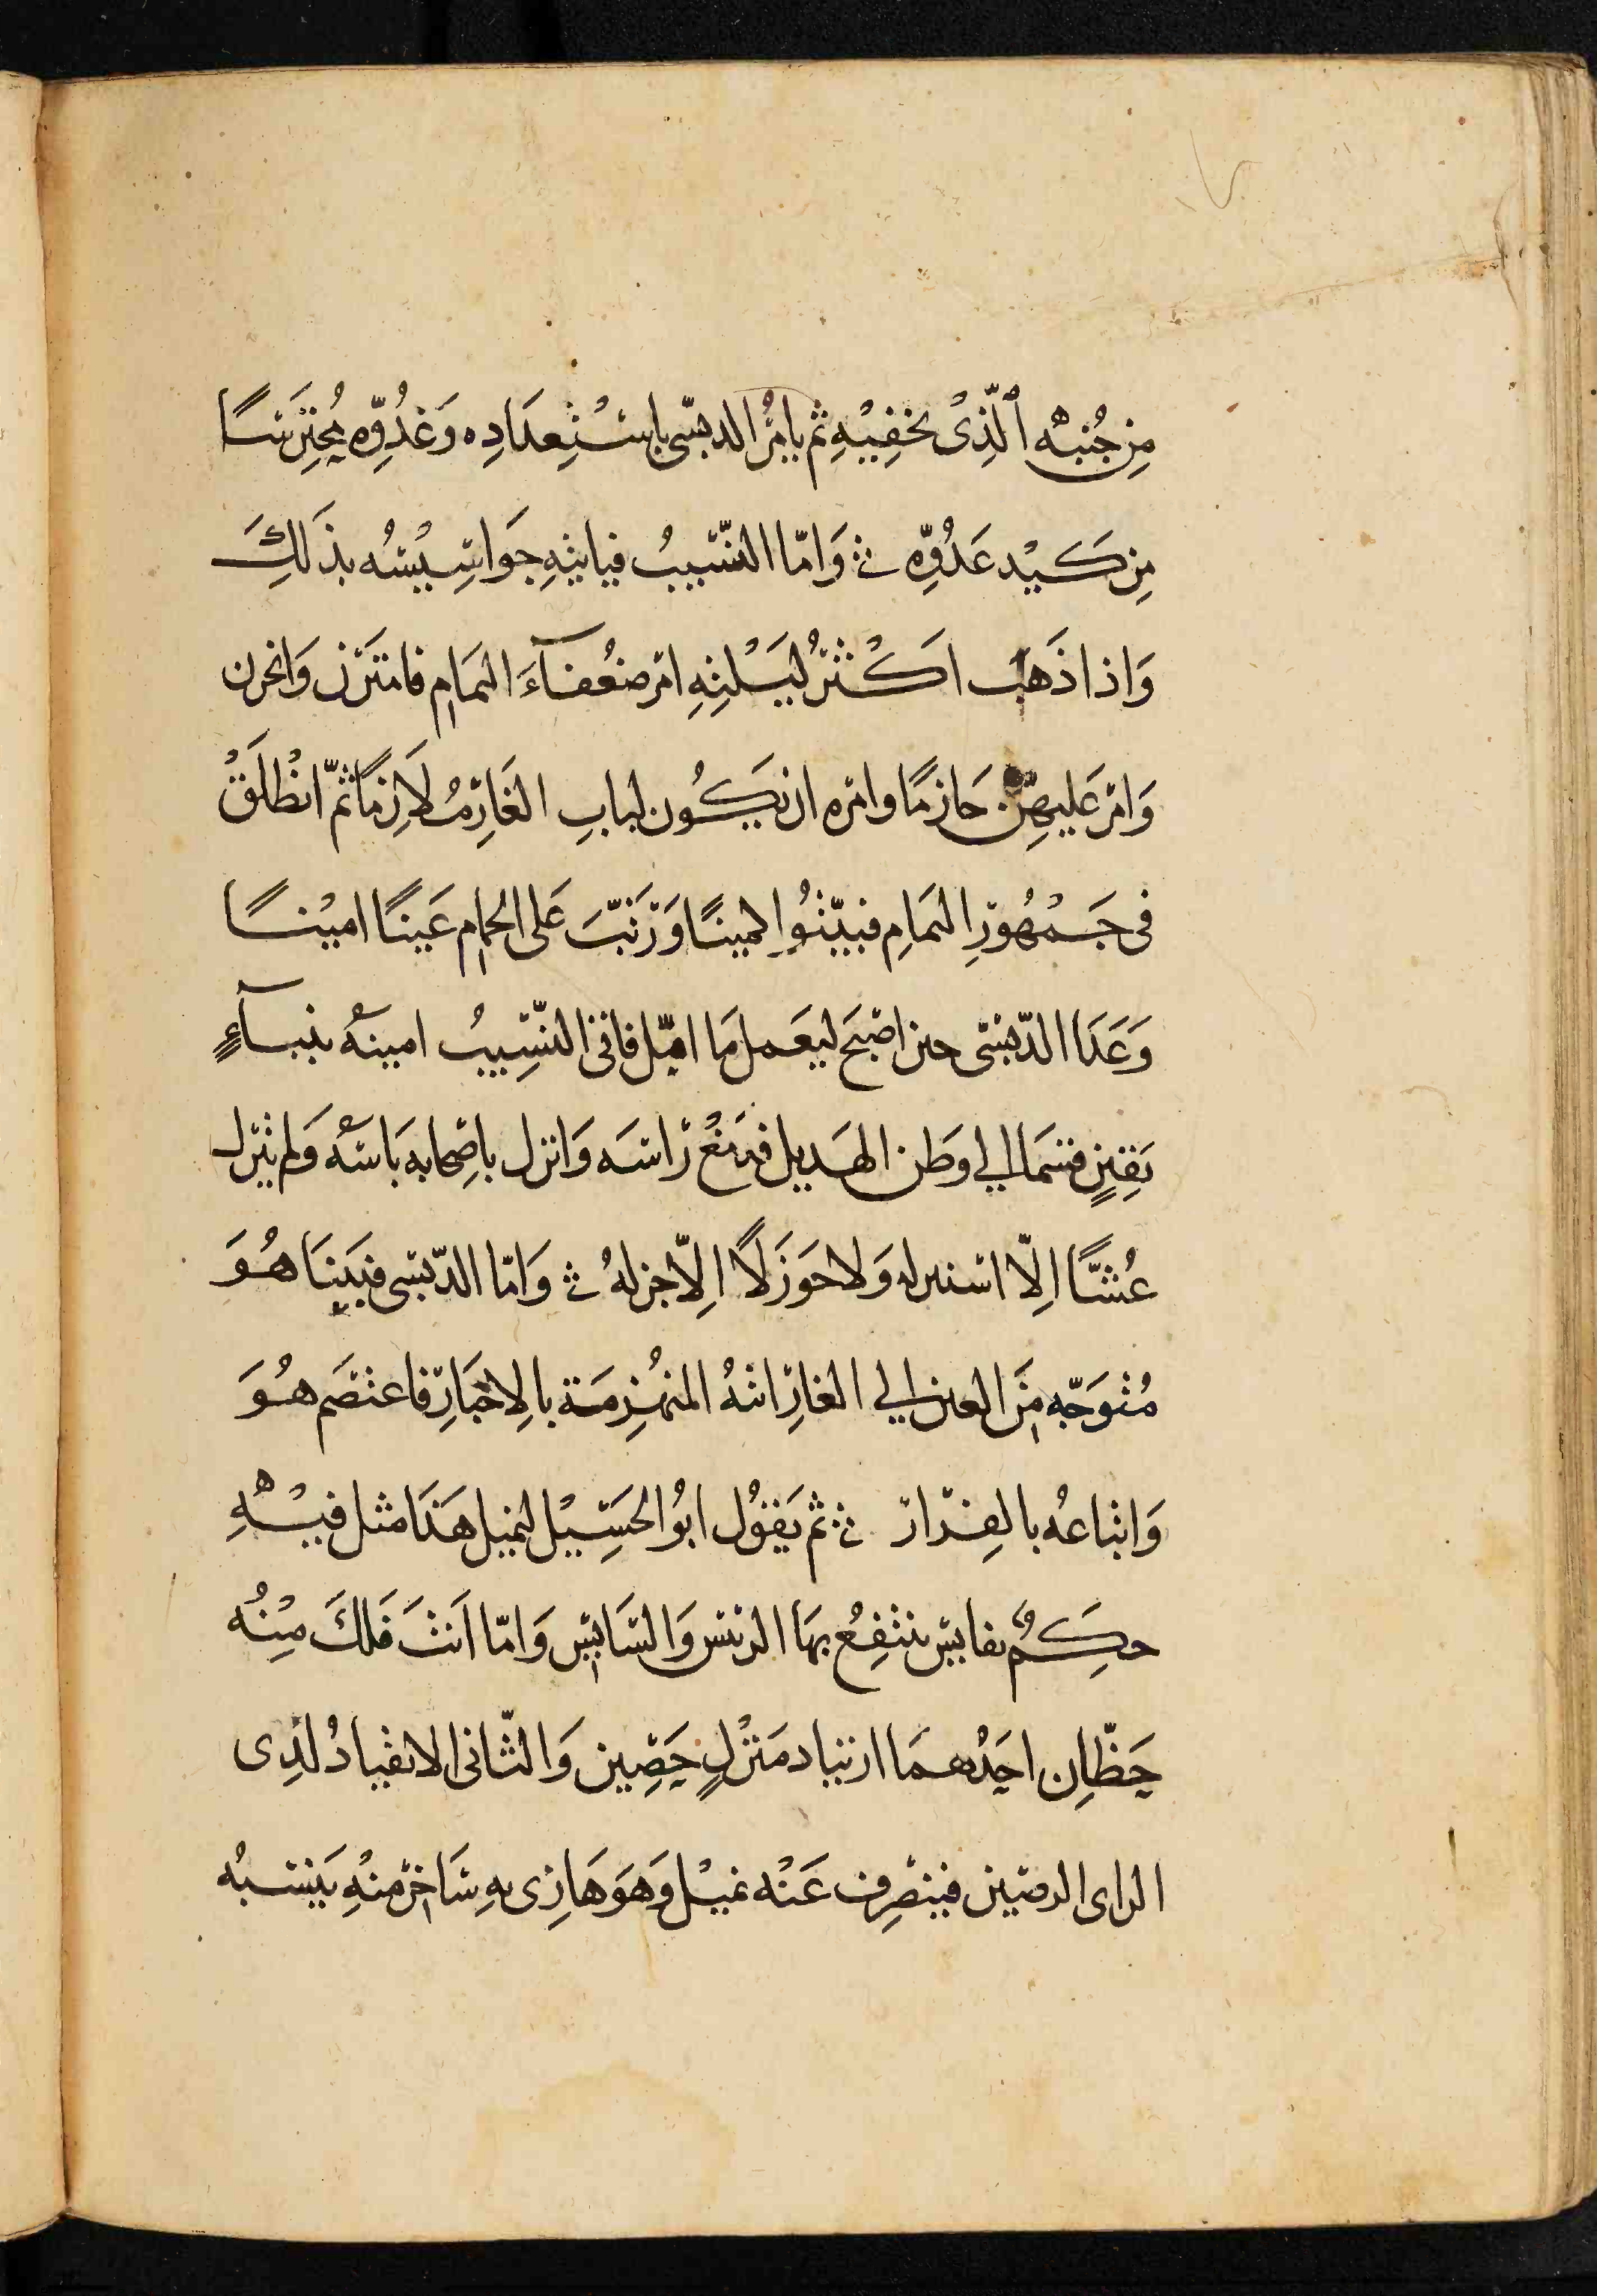 مِن جُنبه الَّذِىْ يخفِيْهِ ثم يامُر الدبسّى باسْتِعدَادِه وَغدُوِّه مُحتَرِسًا
مِن كَيْد عَدُوِّه ۞ وَامّا النّسيبُ فياتيهِ جَواسِيْسُه بذَلكَ
وَاذا ذَهَب اكْثَرُ لَيْلتِهِ امر ضُعفآءَ اليمَامِ فامتَزن وَانحزن
وَامّر عَليهِنّ حَازمًا وامره ان يَكُون لبابِ الغَارِ مُلازِمًا ثمّ انْطلَقْ
فى جَمْهُوْرِ اليمَامِ فبيّتُوا كمينًا وَرَتّبَ عَلى الحمامِ عَينًا اميْنًا
وَعَدَا الدّبسّى حين اصْبَحَ ليَعمل مَا امّل فاتى النّسِيبُ امينهُ بنبآءٍ
يَقِينٍ فسَمَا الي وَطن الهَديل فدَمَغْ رَاسَه وَانزل باصِحابه بَاسَهُ وَلم يَترك
عُشًّا اِلّا استنزله وَلا حَوزَلًا اِلّا جزلهُ ۞ وَامّا الدّبسّى فبَينَا هُوَ
مُتوَجّه مَن العين الي الغارِ اتتهُ المنهُزِمَة بالِاخبَارِ فاعتصَم هُوَ
وَاتباعُه بالفِرَار ۞ ثم يَقوُل ابوُ الحسِيْل لنميل هَذَا مثل فيْهِ
حِكَمٌ نفايس ينتفِعُ بهَا الريّس وَالسَايسِ وَامّا اَنتَ فَلكَ مِنْهُ
حَظّاِن احَدُهمَا ارتياد مَنْزلٍ حَصِين وَالثّانى الانقيادُ لذِى
الراى الرصَين فينصَرِف عَنْه نميْل وَهوَ هَازِى بهِ سَاخِر منْهِ يَنسبُه